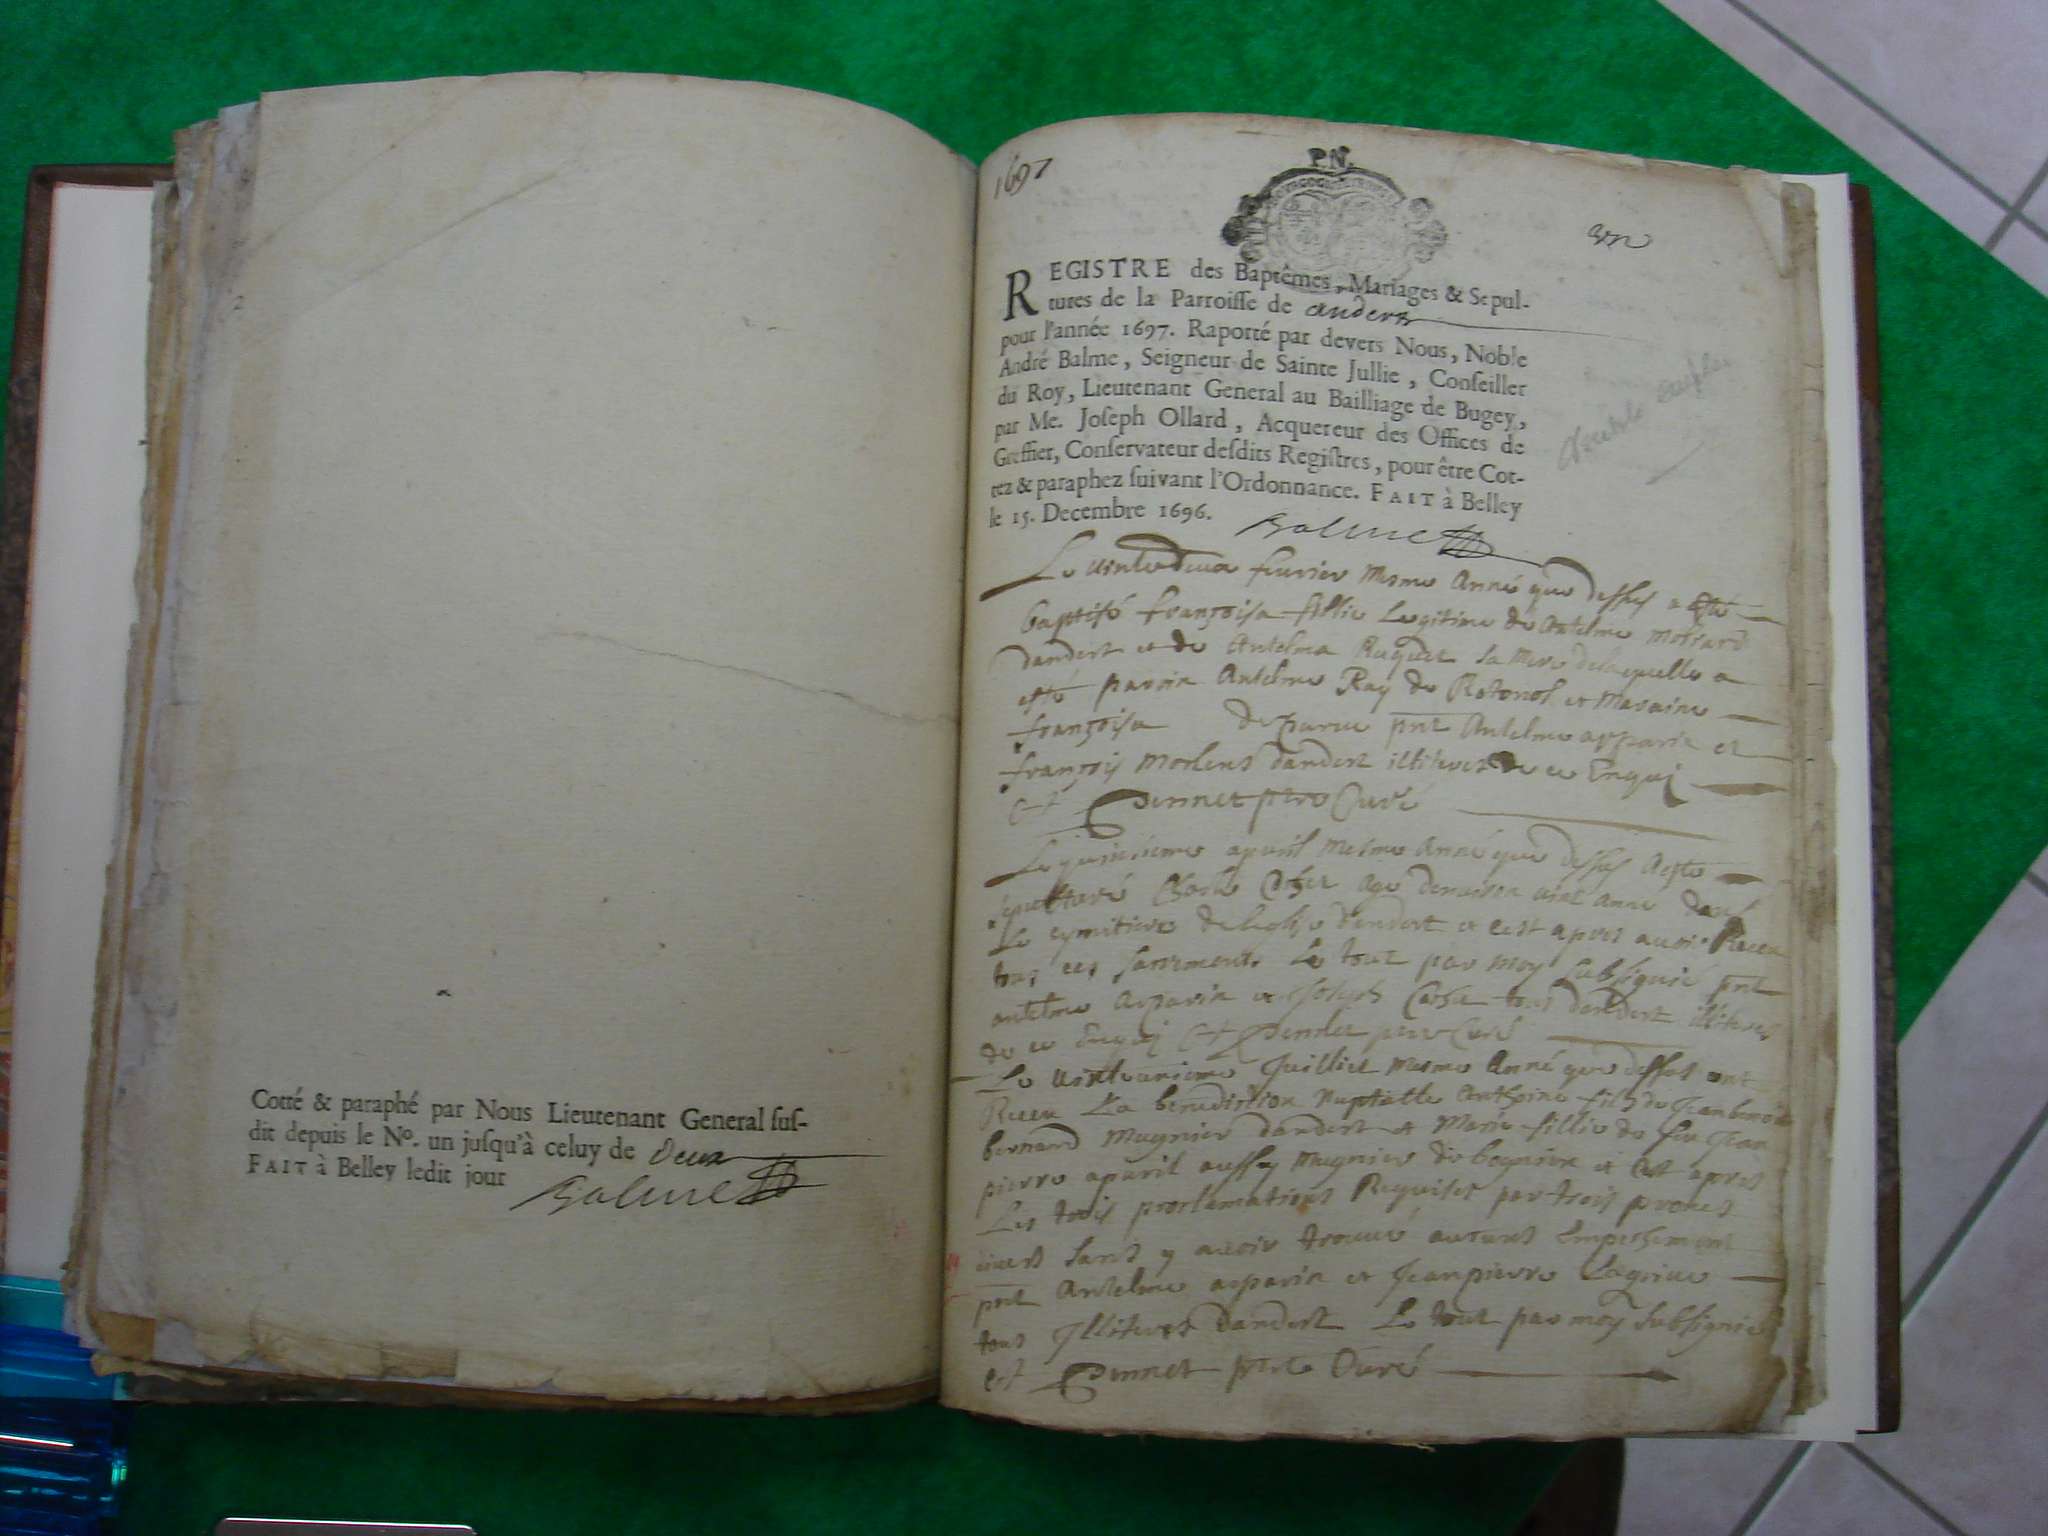 Cotté & paraphé par Nous Lieutenant General suſ-
dit depuis le No. un juſqu'à celuy de deux
FAIT à Belley ledit jour
Balme
1697
PN.
un
REGISTRE des Baptêmes, Mariages & Sepul-
tures de la Parroiſſe de andert
pour l'année 1697. Raporté par devers Nous, Noble
André Balme, Seigneur de Sainte Jullie, Conſeiller
du Roy, Lieutenant General au Bailliage de Bugey,
par Me. Joſeph Ollard, Acquereur des Offices de
Greffier, Conſervateur deſdits Regiſtres, pour être Cot-
tez & paraphez ſuivant l'Ordonnance. FAIT à Belley
le 15. Decembre 1696.
Balme
Le vintedeux feuvrier mesme Anné que dessus a esté
baptisé françoisa fillie Legitime de Antelme
dandert et de Antelma sa mere de laquelle a
esté parrin Antelme Ray de et Maraine
françoisa pnt Antelme apparin et
françois dandert illiteres de ce Enquis
Pennet ptre Curé
Le quinsieme apvril mesme Anné que dessus a esté
sepulturé age denviron vint anne dans
Le cymitiere de leglise dandert et cest apres avoir Receu
tous ces sacrements Le tout par moy subsigné pnt
antelme apparin et Joseph tous dandert illiteres
de ce Enquis Pennet ptre Curé
Le vinteunieme Juilliet mesme Anné que dessus ont
Receu La benediction Nuptialle Anthoine fils de Jean
bernard Mugnier dandert et Marie fillie de feu Jean
pierre aussy Mugnier de et cest apres
Les trois proclamations Requises par trois prones
divers sans y avoir trouvé aucuns Empechement
pnt Antelme apparin et Jeanpierre
tous Illiteres dandert Le tout par moy subsigné
Pennet ptre Curé